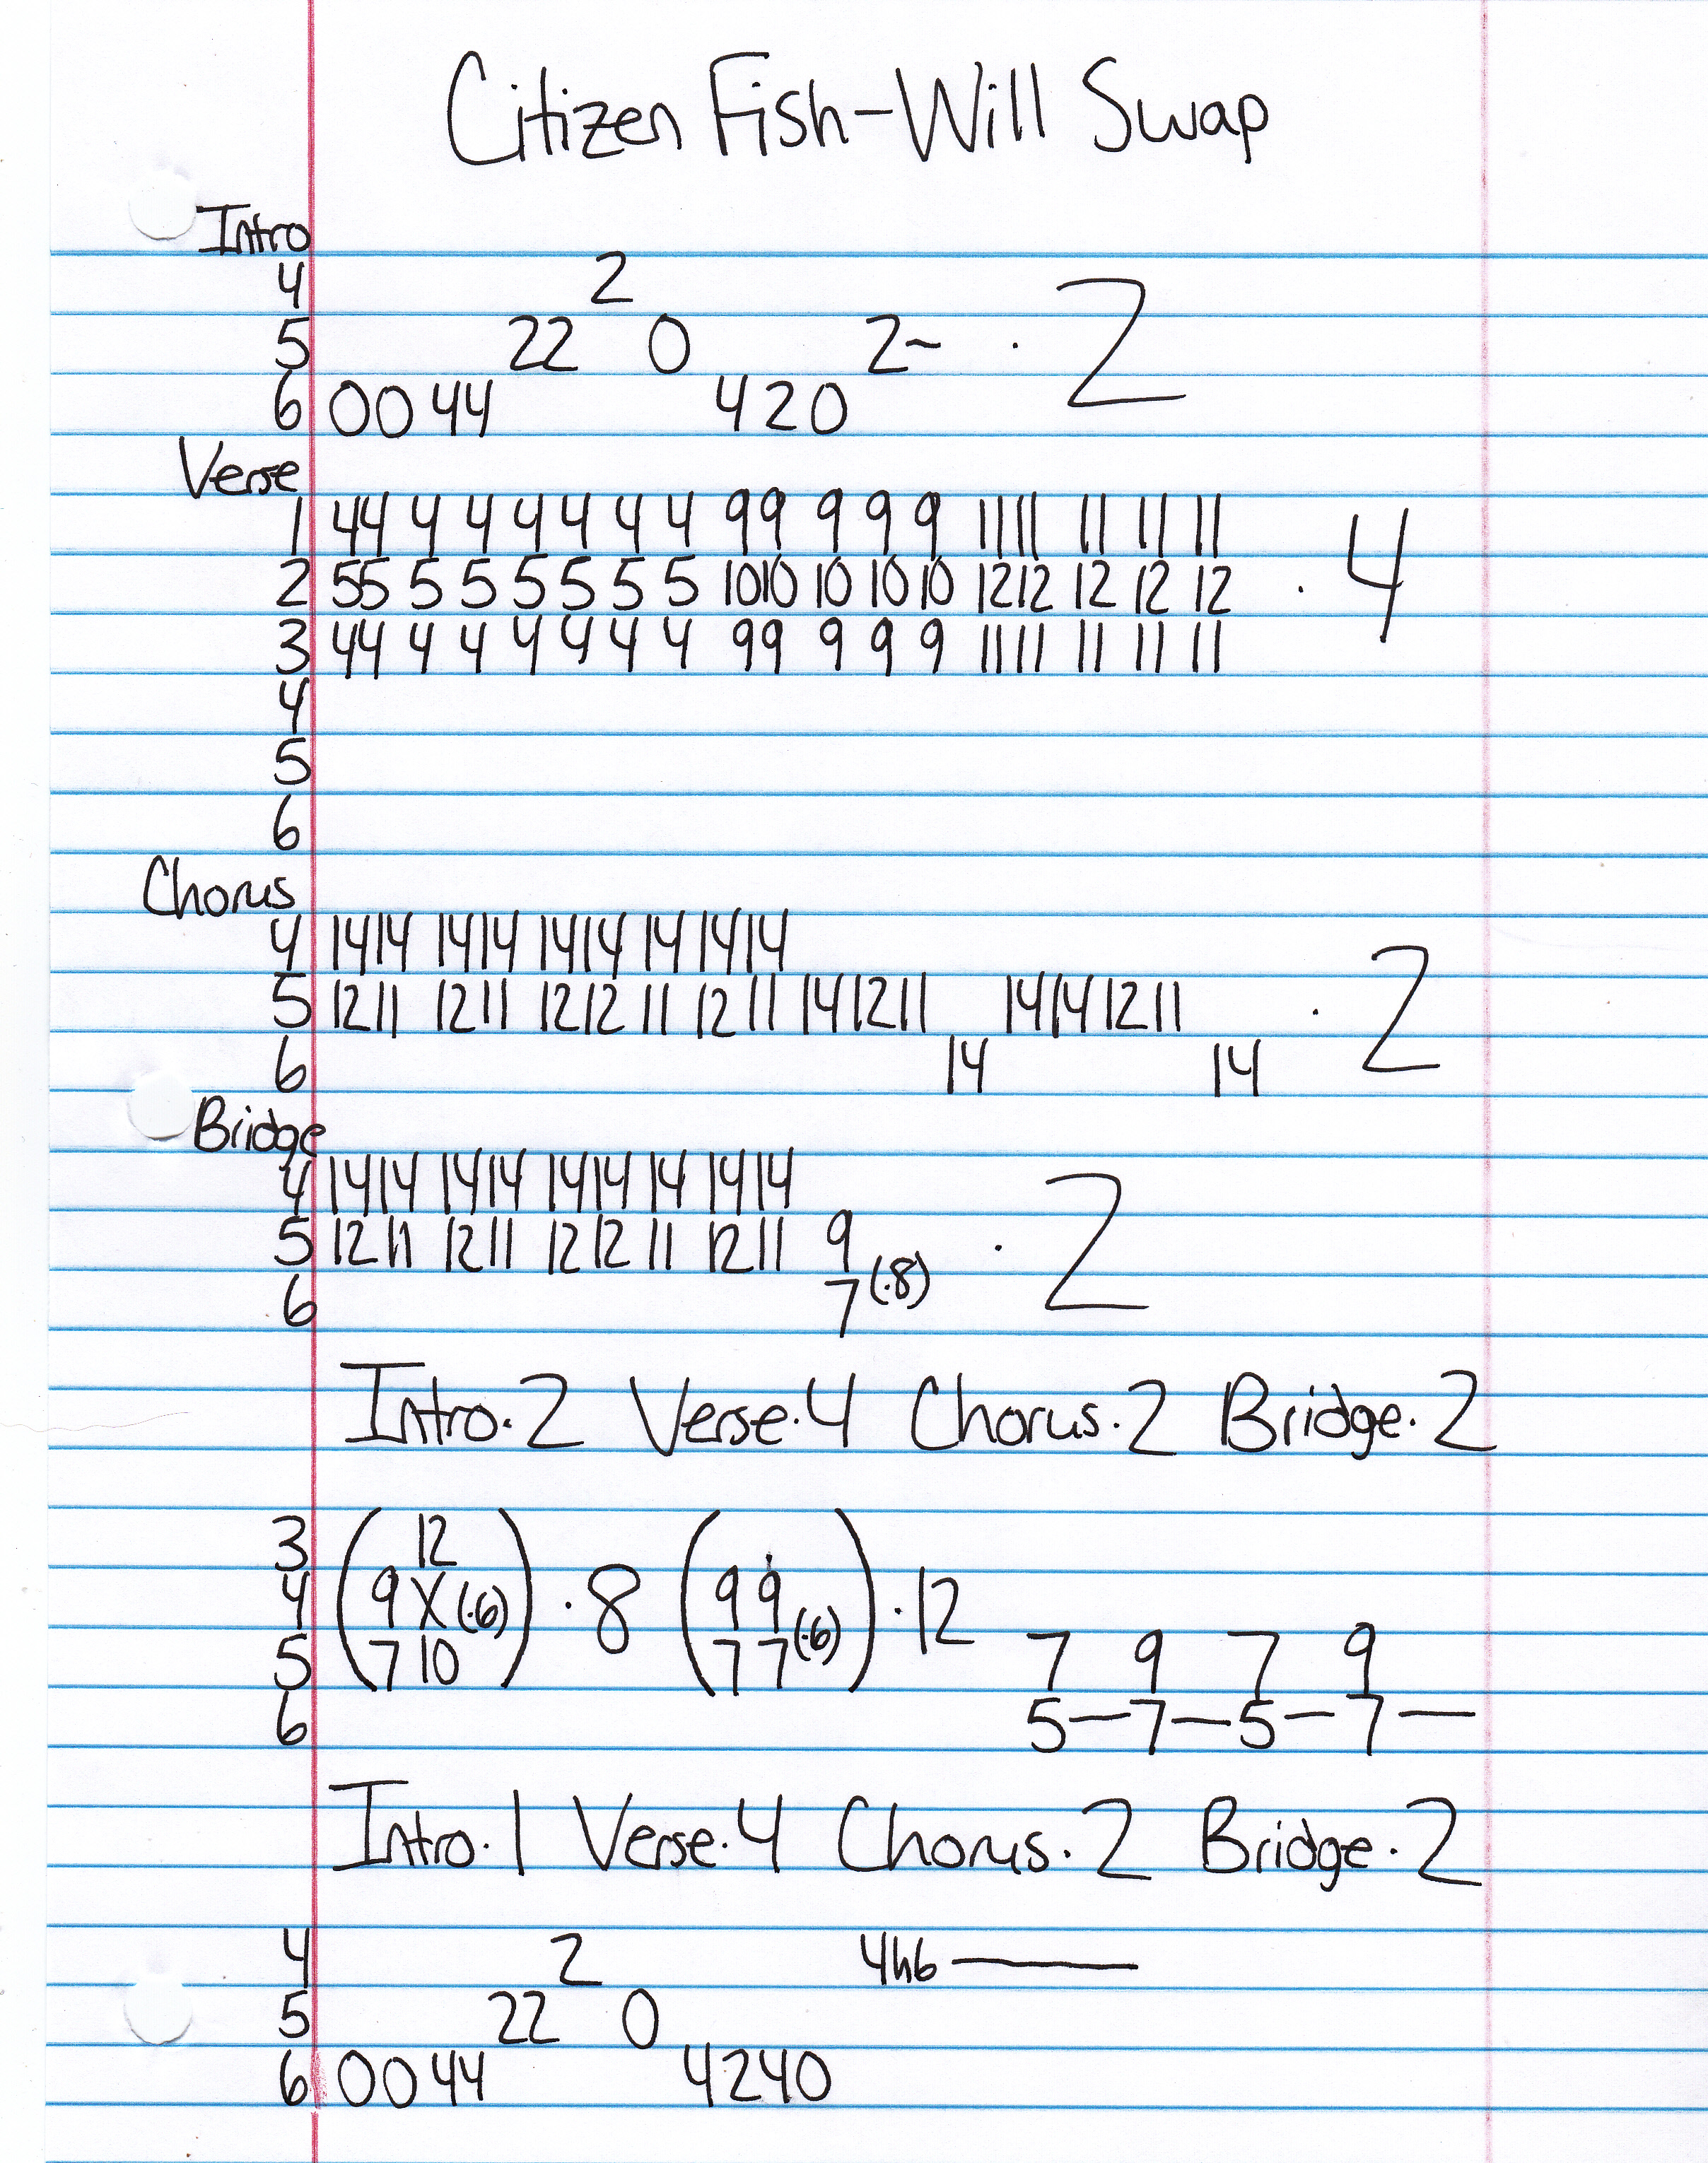 Citizen Fish-Will Swap
Intro
4 2
5 22 0 2~ · 2
6 0044 420
Verse
1 44 4 4 4 4 4 4 99 9 9 9 1111 11 11 11
2 55 5 5 5 5 5 5 1010 10 10 10 1212 12 12 12 · 4
3 44 4 4 4 4 4 4 99 9 9 9 1111 11 11 11
4
5
6
Chorus
4 1414 1414 1414 14 1414
5 1211 1211 1212 11 1211 141211 14141211 · 2
6 14 14
Bridge
4 1414 1414 1414 14 1414
5 1211 1211 1212 11 1211 9 · 2
6 7 (·8)
Intro·2 Verse·4 Chorus·2 Bridge·2
3 ( 12 )
4 ( 9 X (·6) ) · 8 ( 9 9 ) · 12
5 ( 7 10 ) ( 7 7 (·6) ) 7 9 7 9
6 5—7—5—7—
Intro·1 Verse·4 Chorus·2 Bridge·2
4 2 4h6———
5 22 0
6 0044 4240